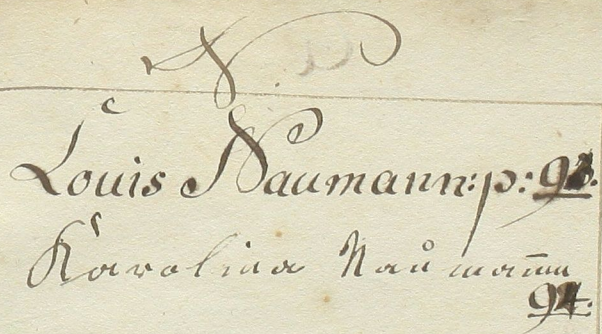 N
Louis Naumann: p: 93.
Karolina Naumann
94.